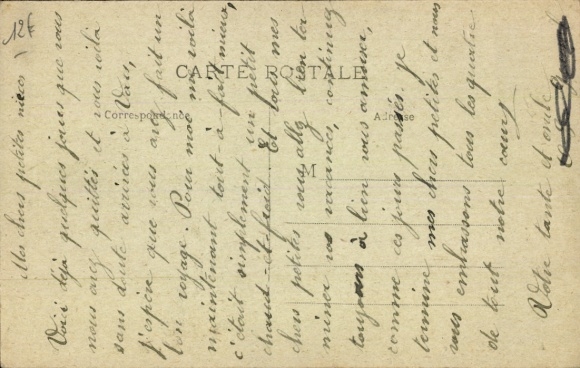 12F
CARTE POSTALE
Correspondance
Adresse
M
Mes chères petites nièces,
Voici déjà quelques jours que vous
nous avez quittés et vous voilà
sans doute arrivées à
j'espère que vous avez fait un
bon voyage. Pour moi me voilà
maintenant tout-à-fait mieux,
c'était simplement un petit
chaud-et-froid. Et vous mes
chers petites vous allez bien ter-
miner vos vacances, continuez
toujours à bien vous amuser,
comme ces jours passés. Je
termine mes chères petites et nous
vous embrassons tous les quatre
de tout notre cœur
Votre tante et oncle